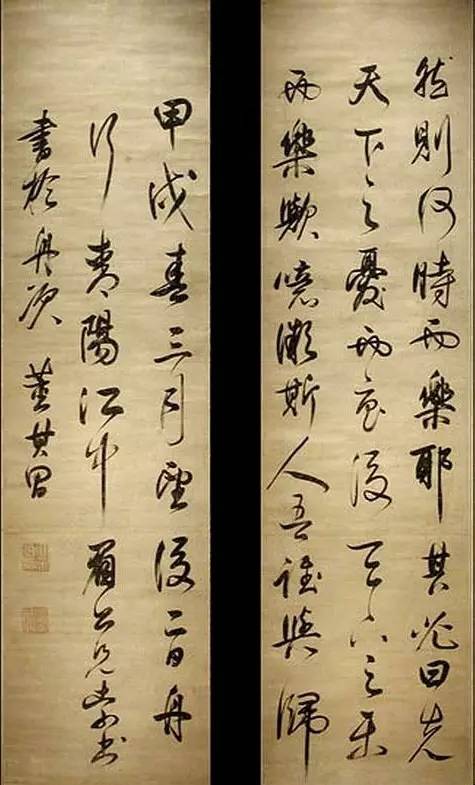 然則何時而樂耶其必曰先
天下之憂而憂後天下之樂
而樂歟噫微斯人吾誰與歸
甲戌春三月望後二日舟
行陽江中眉公兄
書於舟次 董其昌